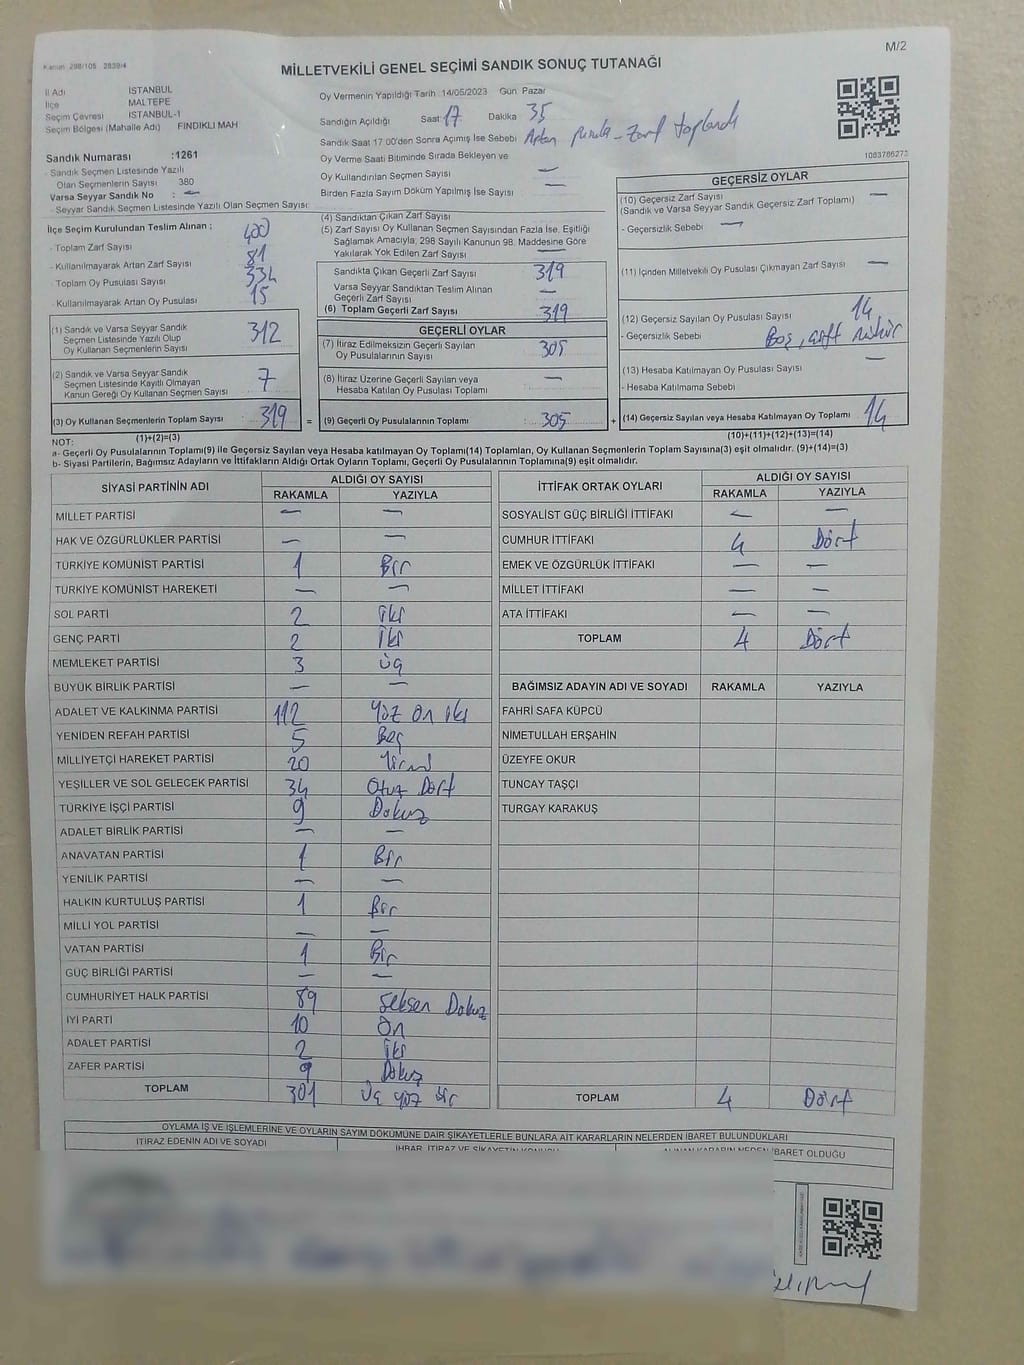 M/2
Kanun 298/105 2839/4
MİLLETVEKİLİ GENEL SEÇİMİ SANDIK SONUÇ TUTANAĞI
İl Adı İSTANBUL
İlçe MALTEPE
Seçim Çevresi İSTANBUL-1
Seçim Bölgesi (Mahalle Adı) FINDIKLI MAH
Sandık Numarası :1261
- Sandık Seçmen Listesinde Yazılı
Olan Seçmenlerin Sayısı 380
Varsa Seyyar Sandık No : —
- Seyyar Sandık Seçmen Listesinde Yazılı Olan Seçmen Sayısı:
İlçe Seçim Kurulundan Teslim Alınan :
- Toplam Zarf Sayısı 400
- Kullanılmayarak Artan Zarf Sayısı 81
- Toplam Oy Pusulası Sayısı 334
- Kullanılmayarak Artan Oy Pusulası 15
(1) Sandık ve Varsa Seyyar Sandık
Seçmen Listesinde Yazılı Olup
Oy Kullanan Seçmenlerin Sayısı 312
(2) Sandık ve Varsa Seyyar Sandık
Seçmen Listesinde Kayıtlı Olmayan
Kanun Gereği Oy Kullanan Seçmen Sayısı 7
(3) Oy Kullanan Seçmenlerin Toplam Sayısı : 319 =
(1)+(2)=(3)
Oy Vermenin Yapıldığı Tarih 14/05/2023 Gün Pazar
Sandığın Açıldığı Saat 17 Dakika 35
Sandık Saat 17:00'den Sonra Açımış İse Sebebi Zarf toplandı
Oy Verme Saati Bitiminde Sırada Bekleyen ve
Oy Kullandırılan Seçmen Sayısı —
Birden Fazla Sayım Döküm Yapılmış İse Sayısı —
(4) Sandıktan Çıkan Zarf Sayısı
(5) Zarf Sayısı Oy Kullanan Seçmen Sayısından Fazla İse, Eşitliği
Sağlamak Amacıyla, 298 Sayılı Kanunun 98. Maddesine Göre
Yakılarak Yok Edilen Zarf Sayısı —
Sandıkta Çıkan Geçerli Zarf Sayısı 319
Varsa Seyyar Sandıktan Teslim Alınan
Geçerli Zarf Sayısı —
(6) Toplam Geçerli Zarf Sayısı 319
GEÇERLİ OYLAR
(7) İtiraz Edilmeksizin Geçerli Sayılan
Oy Pusulalarının Sayısı 305
(8) İtiraz Üzerine Geçerli Sayılan veya
Hesaba Katılan Oy Pusulası Toplamı —
(9) Geçerli Oy Pusulalarının Toplamı : 305 +
1083786273
GEÇERSİZ OYLAR
(10) Geçersiz Zarf Sayısı —
(Sandık ve Varsa Seyyar Sandık Geçersiz Zarf Toplamı)
- Geçersizlik Sebebi —
(11) İçinden Milletvekili Oy Pusulası Çıkmayan Zarf Sayısı —
(12) Geçersiz Sayılan Oy Pusulası Sayısı 14
- Geçersizlik Sebebi Boş, çift mühür
(13) Hesaba Katılmayan Oy Pusulası Sayısı —
- Hesaba Katılmama Sebebi
(14) Geçersiz Sayılan veya Hesaba Katılmayan Oy Toplamı 14
(10)+(11)+(12)+(13)=(14)
NOT:
a- Geçerli Oy Pusulalarının Toplamı(9) ile Geçersiz Sayılan veya Hesaba katılmayan Oy Toplamı(14) Toplamları, Oy Kullanan Seçmenlerin Toplam Sayısına(3) eşit olmalıdır. (9)+(14)=(3)
b- Siyasi Partilerin, Bağımsız Adayların ve İttifakların Aldığı Ortak Oyların Toplamı, Geçerli Oy Pusulalarının Toplamına(9) eşit olmalıdır.
SİYASİ PARTİNİN ADI ALDIĞI OY SAYISI
RAKAMLA YAZIYLA
MİLLET PARTİSİ — —
HAK VE ÖZGÜRLÜKLER PARTİSİ — —
TÜRKİYE KOMÜNİST PARTİSİ 1 Bir
TÜRKİYE KOMÜNİST HAREKETİ — —
SOL PARTİ 2 iki
GENÇ PARTİ 2 İki
MEMLEKET PARTİSİ 3 üç
BÜYÜK BİRLİK PARTİSİ — —
ADALET VE KALKINMA PARTİSİ 112 Yüz On iki
YENİDEN REFAH PARTİSİ 5 Beş
MİLLİYETÇİ HAREKET PARTİSİ 20 Yirmi
YEŞİLLER VE SOL GELECEK PARTİSİ 34 Otuz Dört
TÜRKİYE İŞÇİ PARTİSİ 9 Dokuz
ADALET BİRLİK PARTİSİ — —
ANAVATAN PARTİSİ 1 Bir
YENİLİK PARTİSİ — —
HALKIN KURTULUŞ PARTİSİ 1 Bir
MİLLİ YOL PARTİSİ — —
VATAN PARTİSİ 1 Bir
GÜÇ BİRLİĞİ PARTİSİ — —
CUMHURİYET HALK PARTİSİ 89 Seksen Dokuz
İYİ PARTİ 10 On
ADALET PARTİSİ 2 iki
ZAFER PARTİSİ 9 Dokuz
TOPLAM 301 Üç yüz bir
İTTİFAK ORTAK OYLARI ALDIĞI OY SAYISI
RAKAMLA YAZIYLA
SOSYALİST GÜÇ BİRLİĞİ İTTİFAKI — —
CUMHUR İTTİFAKI 4 Dört
EMEK VE ÖZGÜRLÜK İTTİFAKI — —
MİLLET İTTİFAKI — —
ATA İTTİFAKI — —
TOPLAM 4 Dört
BAĞIMSIZ ADAYIN ADI VE SOYADI RAKAMLA YAZIYLA
FAHRİ SAFA KÜPCÜ
NİMETULLAH ERŞAHİN
ÜZEYFE OKUR
TUNCAY TAŞÇI
TURGAY KARAKUŞ
TOPLAM 4 Dört
OYLAMA İŞ VE İŞLEMLERİNE VE OYLARIN SAYIM DÖKÜMÜNE DAİR ŞİKAYETLERLE BUNLARA AİT KARARLARIN NELERDEN İBARET BULUNDUKLARI
İTİRAZ EDENİN ADI VE SOYADI İHBAR, İTİRAZ VE ŞİKAYETİN KONUSU ALINAN KARARIN NEDEN İBARET OLDUĞU